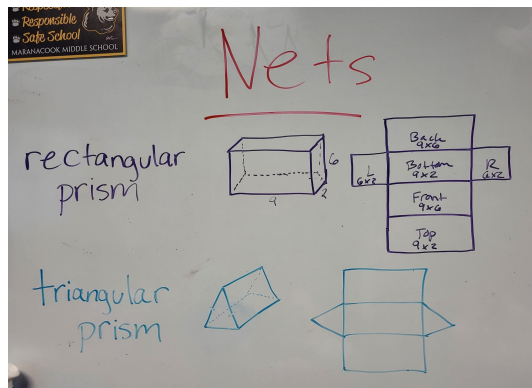 Respect
Responsible
Safe School
MARANACOOK MIDDLE SCHOOL
Nets
rectangular
prism
6
9
2
Back
9x6
L
6x2
Bottom
9x2
R
6x2
Front
9x6
Top
9x2
triangular
prism